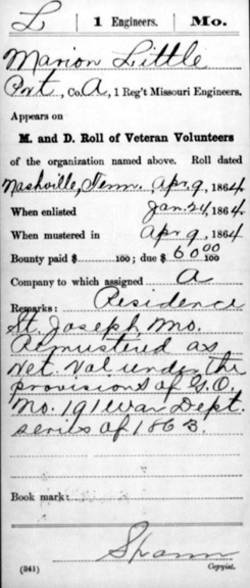 L | 1 Engineers. | Mo.
Marion Little
Pvt, Co. A, 1 Reg't Missouri Engineers.
Appears on
M. and D. Roll of Veteran Volunteers
of the organization named above. Roll dated
Nashville, Tenn. Apr 9, 1864
When enlisted Jan. 24, 1864
When mustered in Apr 9, 1864
Bounty paid $ 100; due $ 60 00 100
Company to which assigned A
Remarks: Residence
St. Joseph Mo.
Remustered as
Vet. Vol under the
provisions of G.O.
No. 191 War Dept.
series of 1863.
Book mark:
Spann
(341) Copyist.